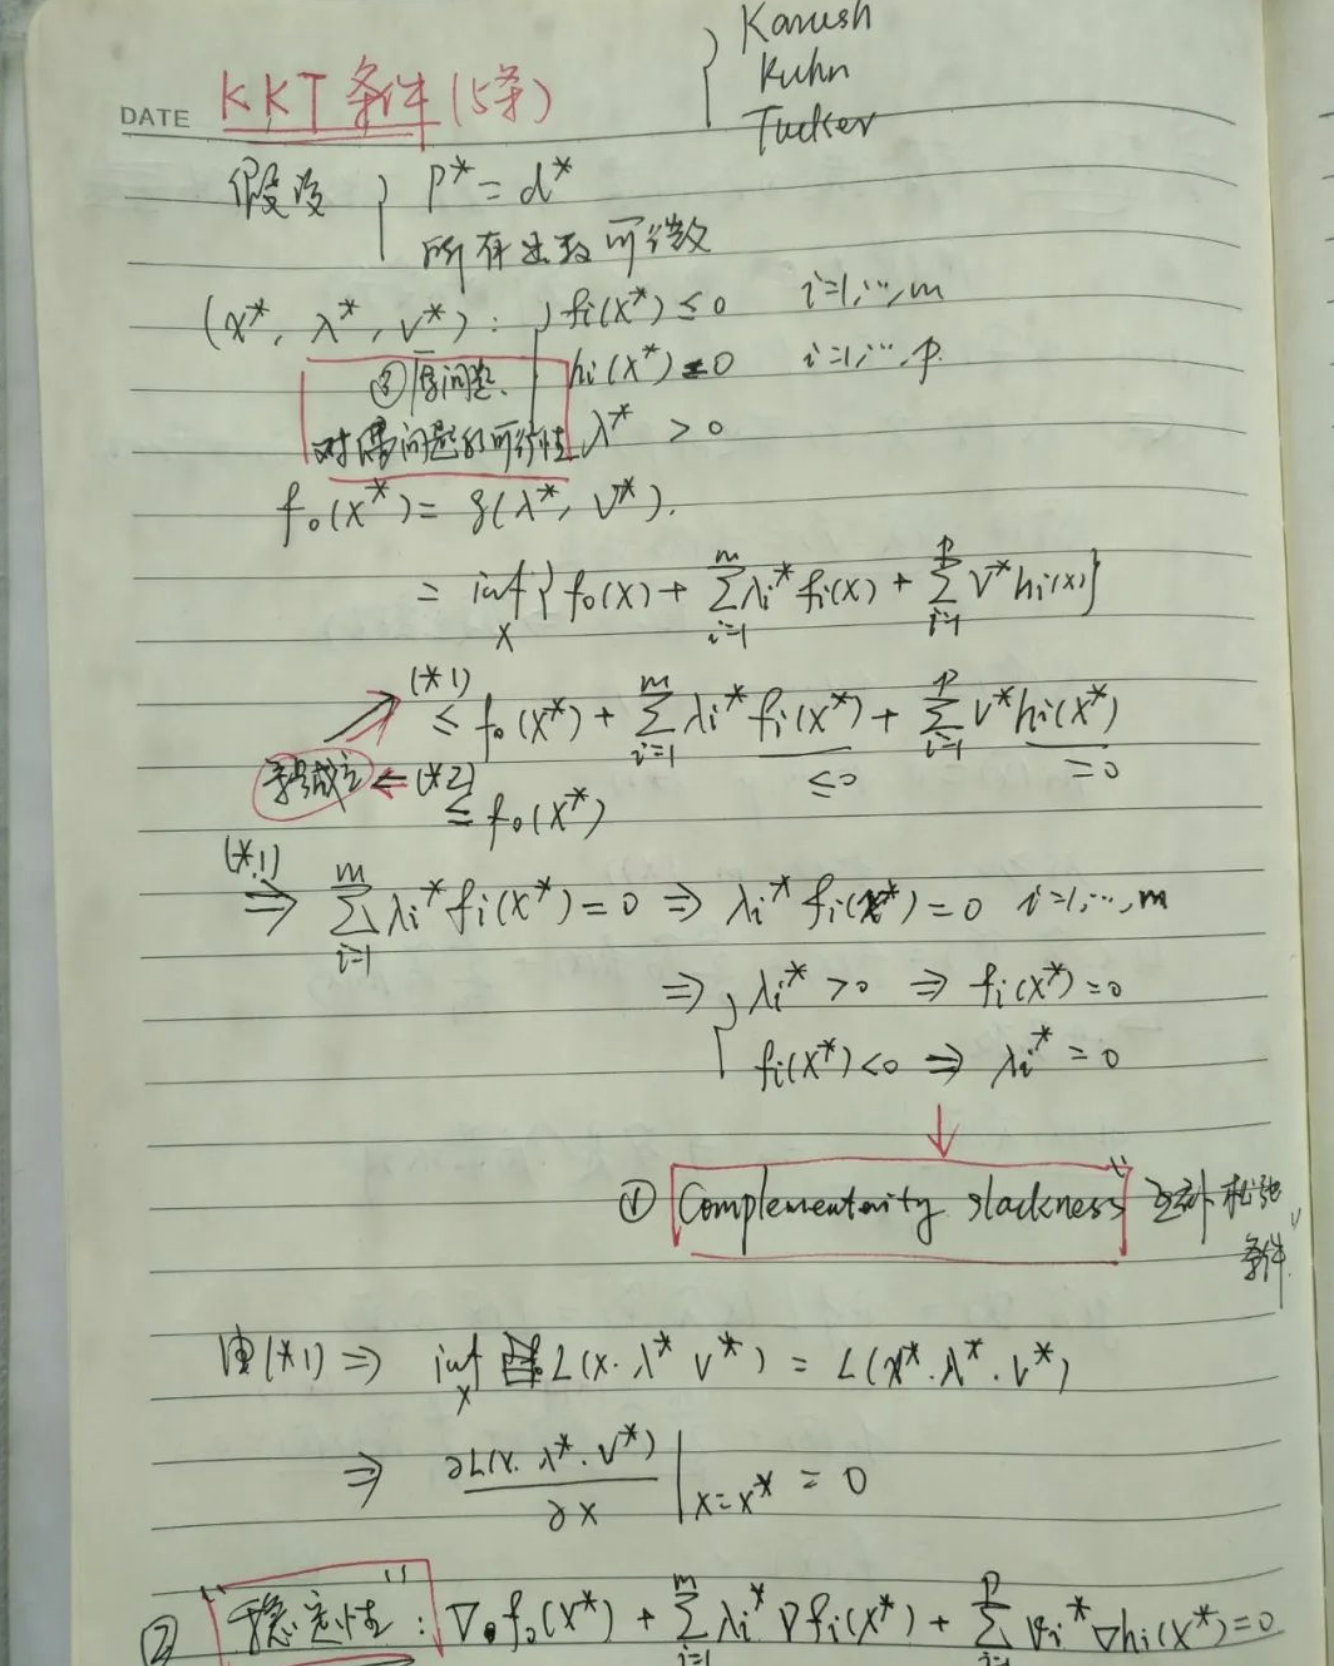 Karush
Kuhn
Tucker
DATE KKT 条件 (5条)
假设 { p* = d*
所有函数可微
(x*, λ*, v*): { fi(x*) ≤ 0 i=1,…,m
③ 原问题、 hi(x*) = 0 i=1,…,p.
对偶问题的可行性 λ* > 0
f₀(x*) = g(λ*, v*).
= inf_x { f₀(x) + Σ_{i=1}^m λi* fi(x) + Σ_{i=1}^p v* hi(x) }
(*1) ≤ f₀(x*) + Σ_{i=1}^m λi* fi(x*) + Σ_{i=1}^p v* hi(x*)
≤0 =0
等号成立 ← (*2) ≤ f₀(x*)
(*1) ⇒ Σ_{i=1}^m λi* fi(x*) = 0 ⇒ λi* fi(x*) = 0 i=1,…,m
⇒ { λi* > 0 ⇒ fi(x*) = 0
fi(x*) < 0 ⇒ λi* = 0
① Complementarity slackness 互补松弛
条件
由(*1) ⇒ inf_x L(x. λ* v*) = L(x*. λ*. v*)
⇒ ∂L(x. λ*. v*) / ∂x |_{x=x*} = 0
② "稳定性": ∇f₀(x*) + Σ_{i=1}^m λi* ∇fi(x*) + Σ_{i=1}^p vi* ∇hi(x*) = 0